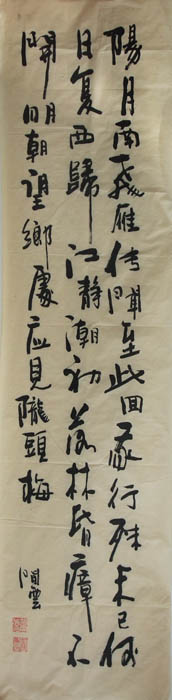 陽月南飛雁傳聞至此回我行殊未已何
日复西歸江静潮初落林昏瘴不
開明朝望鄉處应見隴頭梅
閒雲